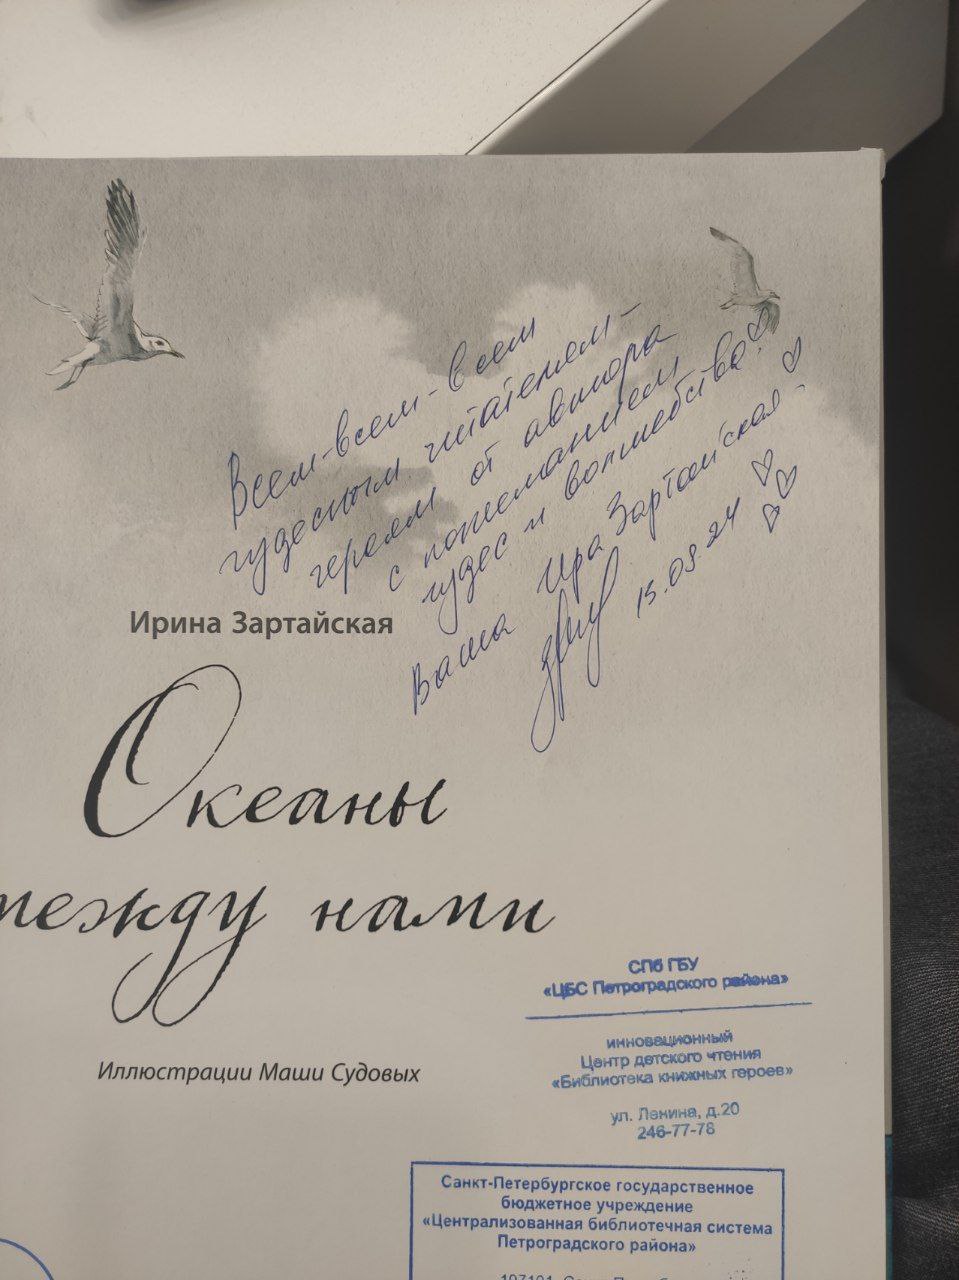 Всем-всем-всем
чудесным читателям-
героям от автора
с пожеланием
чудес и волшебства!
Ваша Ира Зартайская
15.03.24
Ирина Зартайская
Океаны
между нами
Иллюстрации Маши Судовых
СПб ГБУ
«ЦБС Петроградского района»
инновационный
Центр детского чтения
«Библиотека книжных героев»
ул. Ленина, д.20
246-77-78
Санкт-Петербургское государственное
бюджетное учреждение
«Централизованная библиотечная система
Петроградского района»